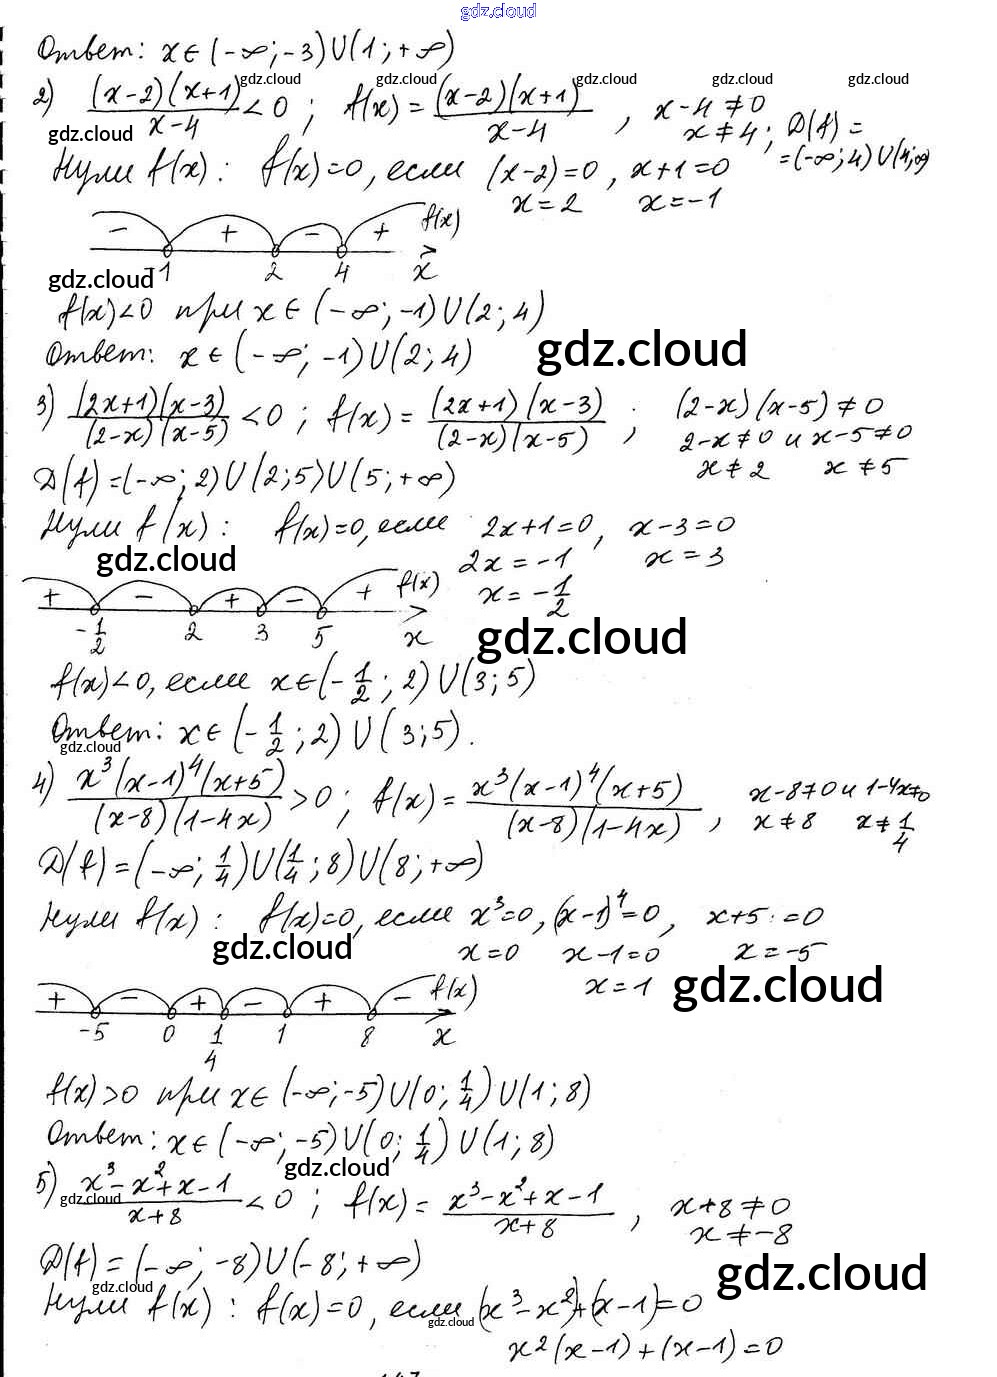 gdz.cloud
Ответ: x∈(-∞;-3)∪(1;+∞)
gdz.cloud gdz.cloud gdz.cloud gdz.cloud
2) (x-2)(x+1)/(x-4) < 0 ; f(x) = (x-2)(x+1)/(x-4) , x-4≠0
gdz.cloud x≠4 ; D(f) =
= (-∞; 4)∪(4;∞)
Нули f(x) : f(x)=0, если (x-2)=0, x+1=0
x=2 x=-1
- + - + f(x)
-1 2 4 x
gdz.cloud
f(x)<0 при x∈(-∞;-1)∪(2;4)
Ответ: x∈(-∞;-1)∪(2;4)
gdz.cloud
3) (2x+1)(x-3)/(2-x)(x-5) < 0 ; f(x) = (2x+1)(x-3)/(2-x)(x-5) , (2-x)(x-5)≠0
2-x≠0 и x-5≠0
x≠2 x≠5
D(f)=(-∞;2)∪(2;5)∪(5;+∞)
Нули f(x) : f(x)=0, если 2x+1=0, x-3=0
gdz.cloud 2x=-1 x=3
x=-1/2
+ - + - + f(x)
-1/2 2 3 5 x
gdz.cloud
f(x)<0, если x∈(-1/2; 2)∪(3;5)
Ответ: x∈(-1/2;2)∪(3;5).
gdz.cloud
4) x³(x-1)⁴(x+5)/(x-8)(1-4x) > 0 ; f(x) = x³(x-1)⁴(x+5)/(x-8)(1-4x) , x-8≠0 и 1-4x≠0
x≠8 x≠1/4
D(f)=(-∞; 1/4)∪(1/4; 8)∪(8;+∞)
Нули f(x) : f(x)=0, если x³=0, (x-1)⁴=0, x+5=0
gdz.cloud x=0 x-1=0 x=-5
x=1 gdz.cloud
+ - + - + - f(x)
-5 0 1/4 1 8 x
f(x)>0 при x∈(-∞;-5)∪(0; 1/4)∪(1;8)
Ответ: x∈(-∞;-5)∪(0; 1/4)∪(1;8)
gdz.cloud
5) x³-x²+x-1/x+8 < 0 ; f(x) = x³-x²+x-1/x+8 , x+8≠0
gdz.cloud x≠-8
D(f)=(-∞;-8)∪(-8;+∞)
gdz.cloud gdz.cloud
Нули f(x) : f(x)=0, если (x³-x²)+(x-1)=0
gdz.cloud
x²(x-1)+(x-1)=0